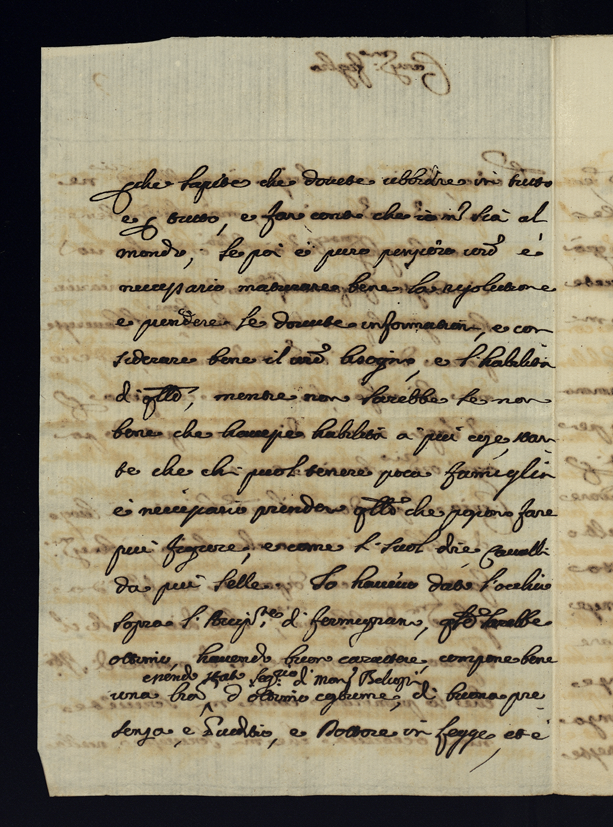 che sapete che dovete ubbidire in tutto
e p tutto, e far conto che io nō sia al
mondo; se poi è puro pensiero vrō è
necessario maturare bene la resolutione
e prendere le dovute informationi, e con
siderare bene il vrō bisogno, e l'habilità
di qllo, mentre non sarebbe se non
bene che havesse habilità a più cose, stan
te che chi vuol tenere poca famiglia
è necessario prender qllo che possono fare
più figure, e come si suol dire Cavalli
da più selle. Io havevo dato l'ochio
sopra di fermignan, qsto sarebbe
ottimo, havendo buon carattere, compone bene
essendo stato Segrio di Monsr
una lra, d'ottimo costume, di buona pre
senza e Giuditio, e Dottore in legge, et è